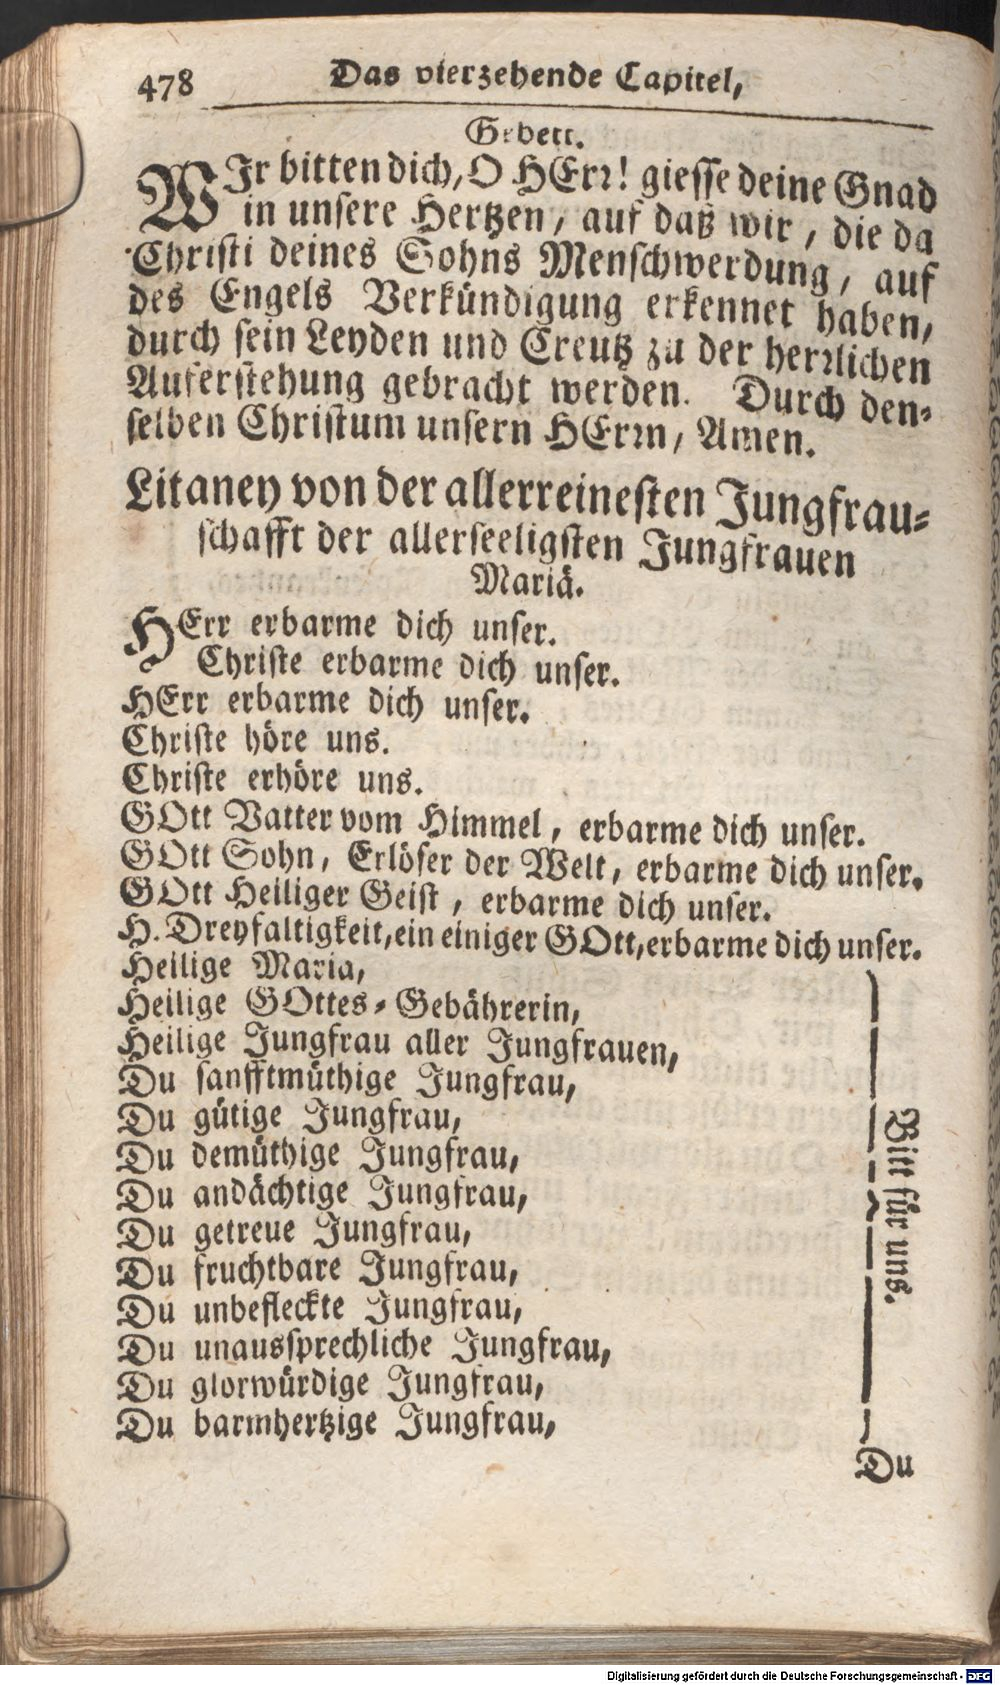 478 Das vierzehende Capitel,
Gebett.
WIr bitten dich, O HErr! giesse deine Gnad
in unsere Hertzen, auf daß wir, die da
Christi deines Sohns Menschwerdung, auf
des Engels Verkündigung erkennet haben,
durch sein Leyden und Creutz zu der herrlichen
Auferstehung gebracht werden. Durch den-
selben Christum unsern HErrn, Amen.
Litaney von der allerreinesten Jungfrau-
schafft der allerseeligsten Jungfrauen
Mariä.
HErr erbarme dich unser.
Christe erbarme dich unser.
HErr erbarme dich unser.
Christe höre uns.
Christe erhöre uns.
GOtt Vatter vom Himmel, erbarme dich unser.
GOtt Sohn, Erlöser der Welt, erbarme dich unser.
GOtt Heiliger Geist, erbarme dich unser.
H. Dreyfaltigkeit, ein einiger GOtt, erbarme dich unser.
Heilige Maria,
Heilige GOttes-Gebährerin,
Heilige Jungfrau aller Jungfrauen,
Du sanfftmüthige Jungfrau,
Du gütige Jungfrau,
Du demüthige Jungfrau,
Du andächtige Jungfrau,
Du getreue Jungfrau,
Du fruchtbare Jungfrau,
Du unbefleckte Jungfrau,
Du unaussprechliche Jungfrau,
Du glorwürdige Jungfrau,
Du barmhertzige Jungfrau,
Bitt für uns.
Du
Digitalisierung gefördert durch die Deutsche Forschungsgemeinschaft - DFG